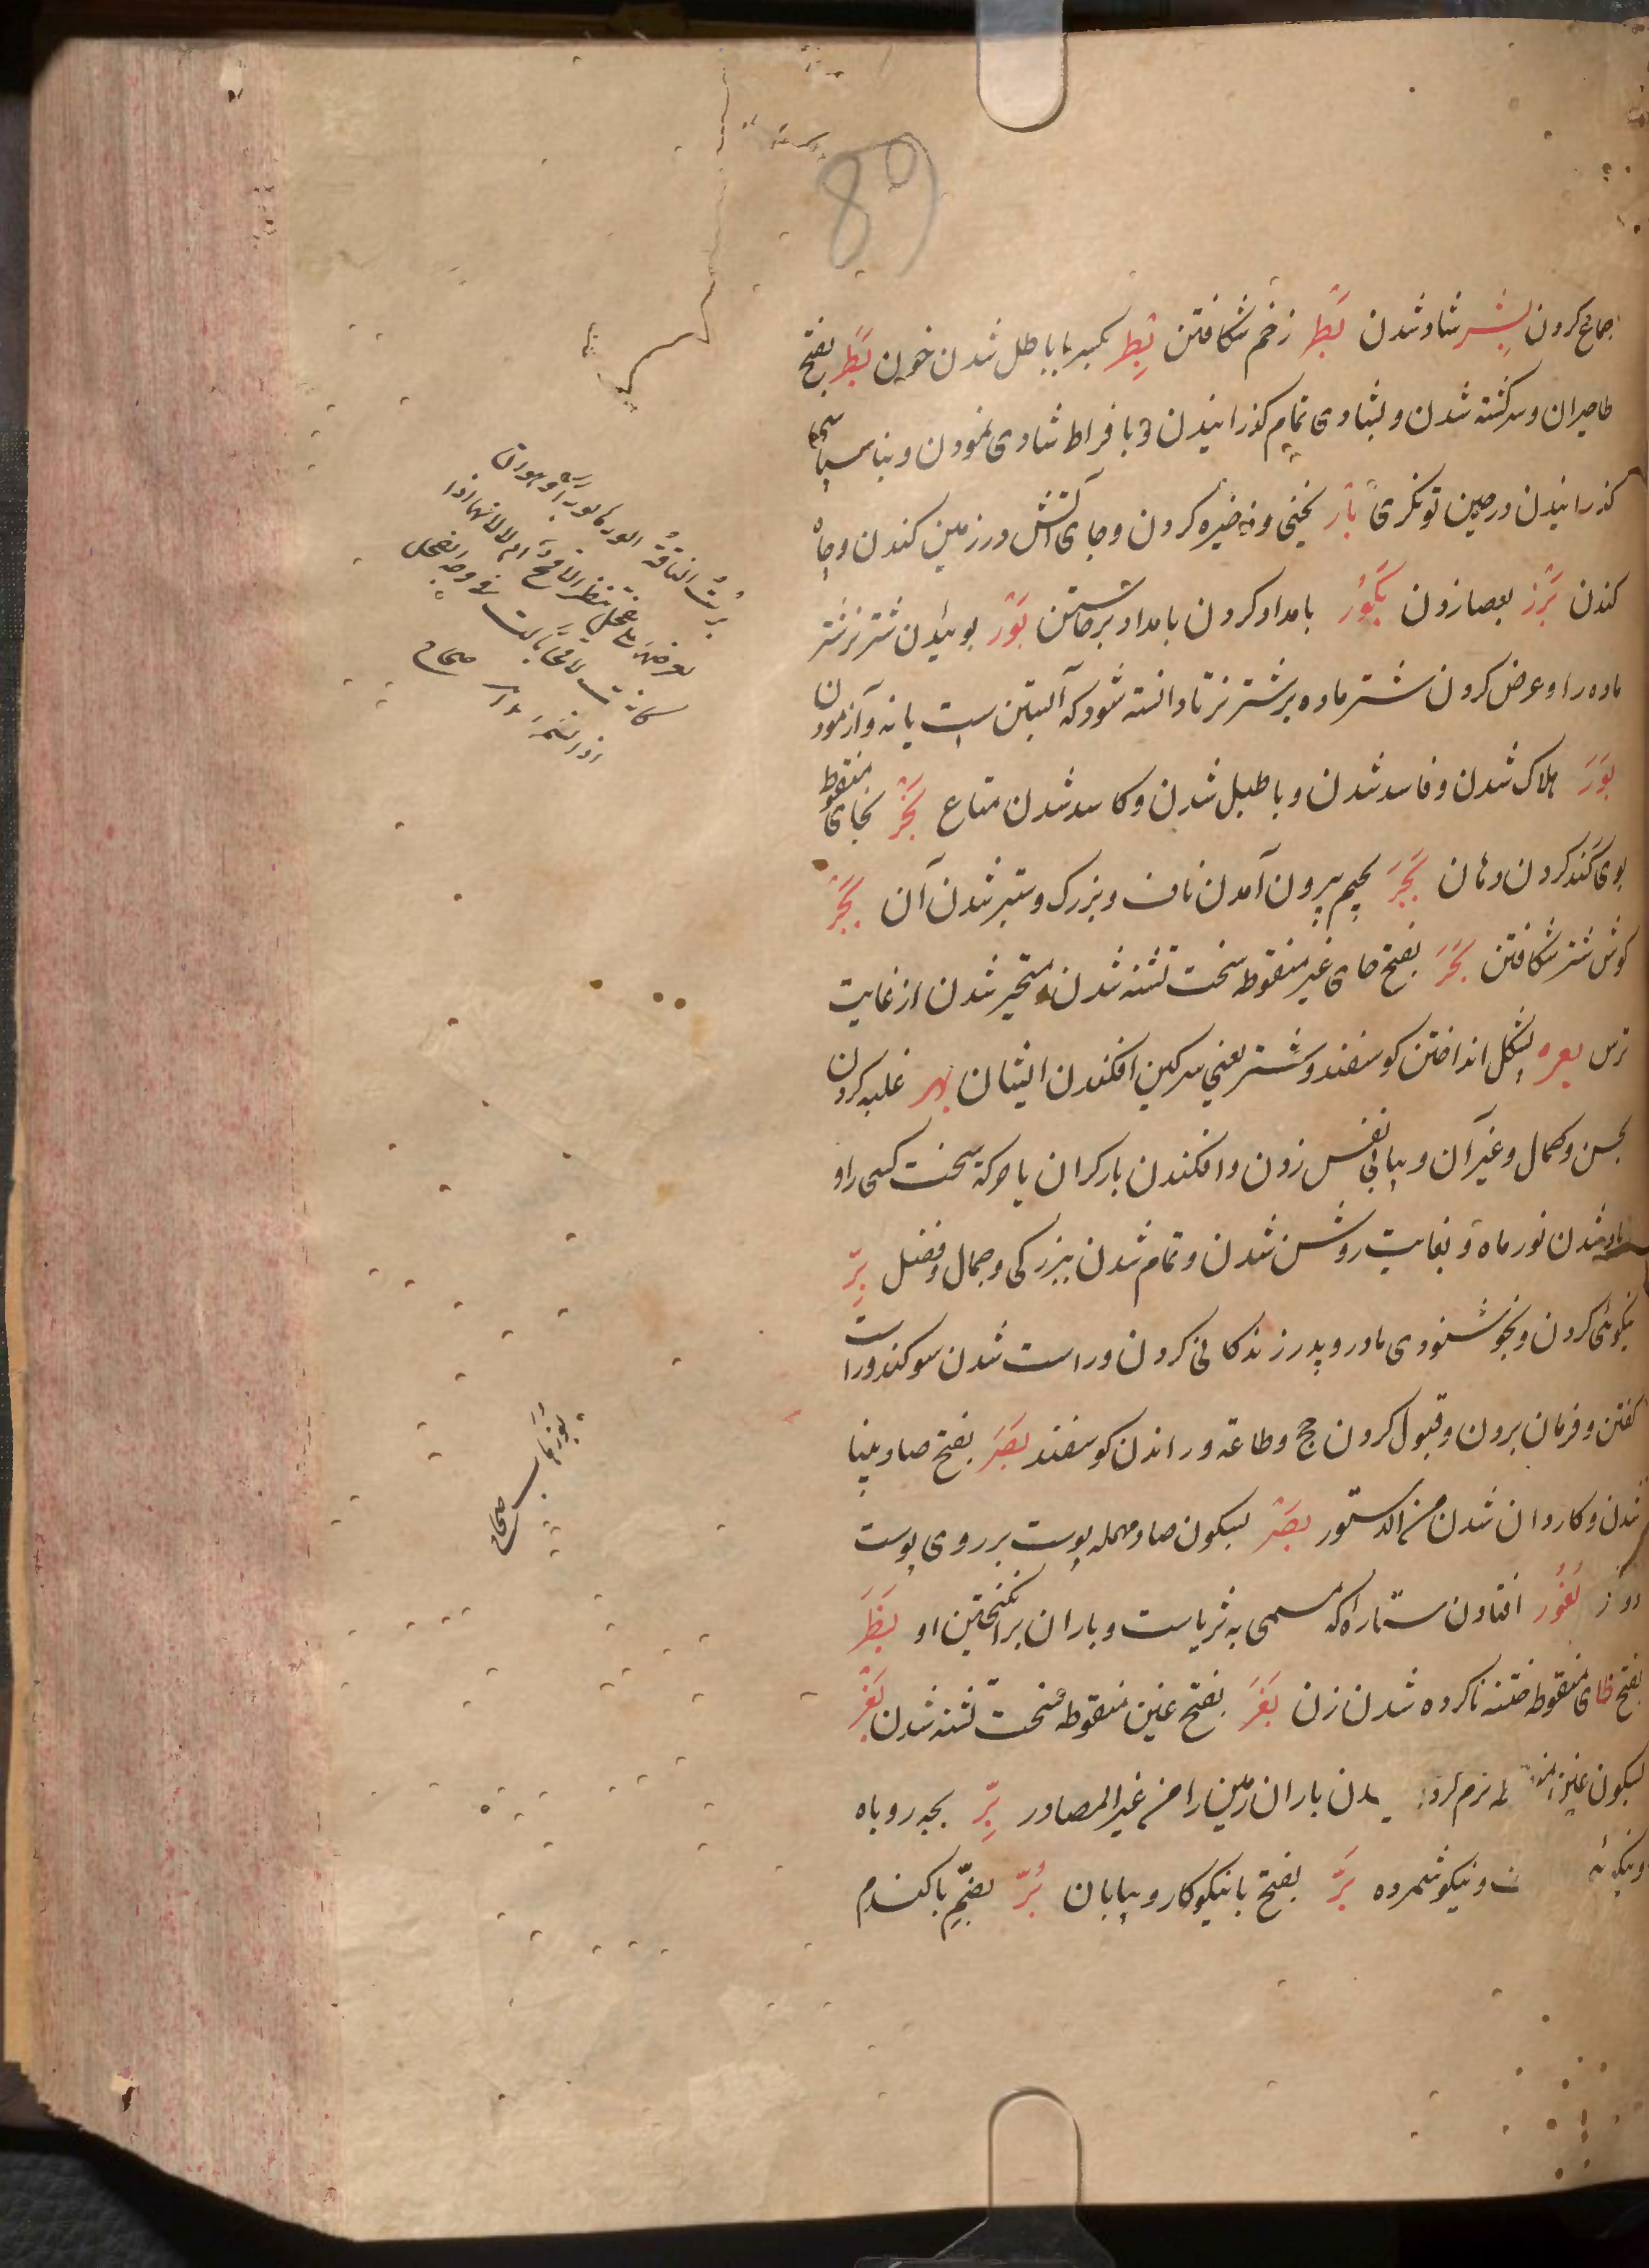 89
جماع کردن بِشر شاد شدن بَطْر زخم شکافتن بِطر بکسر با باطل شدن خون بَطَر بفتح
طا حیران و سرکشته شدن و بشادی تمام کذرانیدن و بافراط شادی نمودن و بناسپاسی
کذرانیدن در حین توانکری بَأر نخنی و ذخیره کردن و جای آتش در زمین کندن و چاه
کندن بَزْر بعصا زدن بُکُور بامداد کردن بامداد برخاستن بَوْر بوئیدن شتر نر شتر
ماده را و عرض کردن شتر ماده بر شتر نر تا دانسته شود که آبستن ست یا نه و آزمودن
بَوَرَ هلاک شدن و فاسد شدن و باطل شدن و کاسد شدن متاع بَخَر بخای منقوطه
بوی کند کردن دهان بَجَرَ بجیم بیرون آمدن ناف و بزرک و ستبر شدن آن بَحْر
کوش شتر شکافتن بَحَرَ بفتح حای غیر منقوطه سخت تشنه شدن و متحیر شدن از غایت
ترس بعره پشکل انداختن کوسفند و شتر یعنی سرکین افکندن ایشان بهر غلبه کردن
بحسن و کمال و غیر آن و پیاپی نفس زدن و افکندن بار کران یا حرکة سخت کسی را و
شدن نور ماه و بغایت روشن شدن و تمام شدن ببزرکی و جمال و فضل بِرّ
نیکوئی کردن و بخوشنودی مادر و پدر زندکانی کردن و راست شدن سوکند و راست
کفتن و فرمان بردن و قبول کردن حج و طاعة و راندن کوسفند بَصَرَ بفتح صاد بینا
شدن و کاردان شدن من الدستور بَصْر بسکون صاد مهمله پوست بر روی پوست
بُغُور افتادن ستاراه که مسمی به ثریاست و باران برانکیختن او بَظَرَ
بفتح ظای منقوطه ختنه ناکرده شدن زن بَغَرَ بفتح غین منقوطه سخت تشنه شدن بَغْر
بسکون غین نرم کرد دن باران زمین را من غیر المصادر بِرّ بچه روباه
و نیکوئی و نیکو شمرده بَرّ بفتح با نیکوکار و بیابان بُرّ بضم با کندم
برت الناقة ابورها بورا وهو ان
تعرضها علی فحل تنظر الاقح ام لا لانها اذا
کانت لاقحا بالت فی وجه الفحل
اذا تشمها صحاح
صحاح